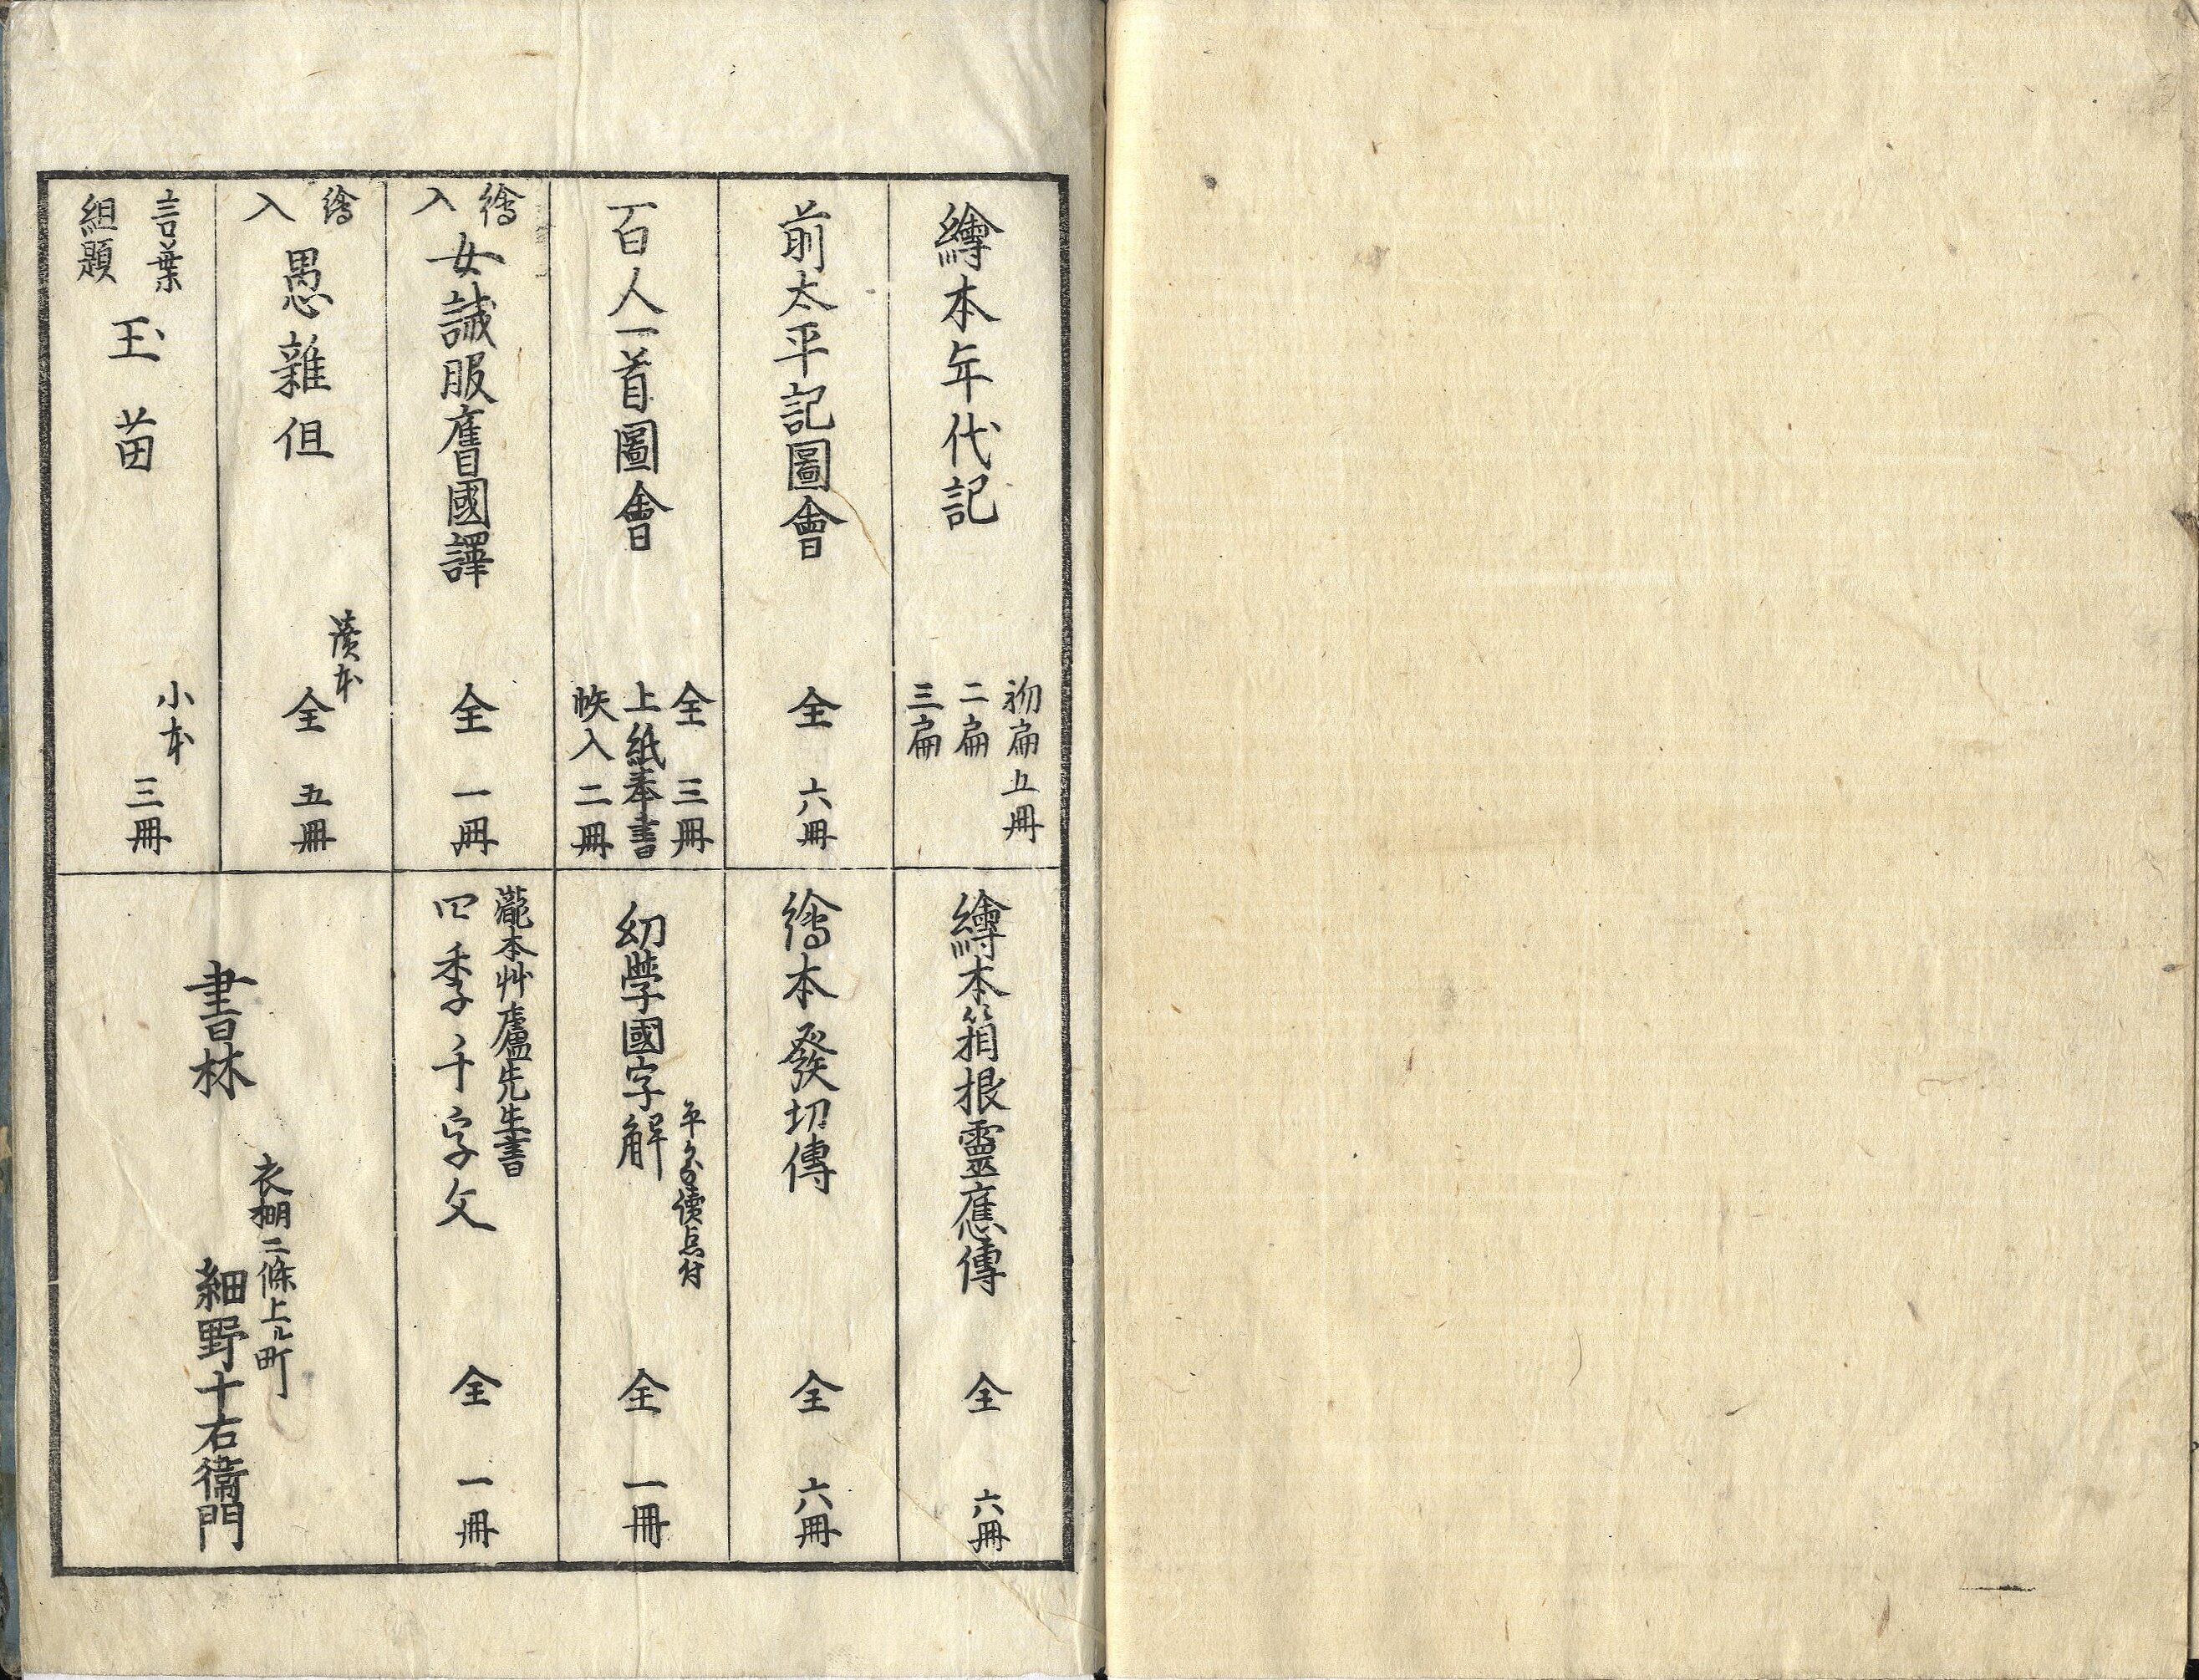 繪本年代記
初扁五冊
二扁
三扁
前太平記圖會
全 六冊
百人一首圖會
全 三冊
上紙奉書
帙入二冊
繪入
女誡服膺國譯
全 一冊
繪入
愚雜俎
讀本
全 五冊
言葉
組題
玉苗
小本
三冊
繪本箱根靈應傳
全 六冊
繪本發切傳
全 六冊
幼學國字解
全 一冊
瀧本艸廬先生書
四季千字文
全 一冊
書林
衣棚二條上ル町
細野十右衞門